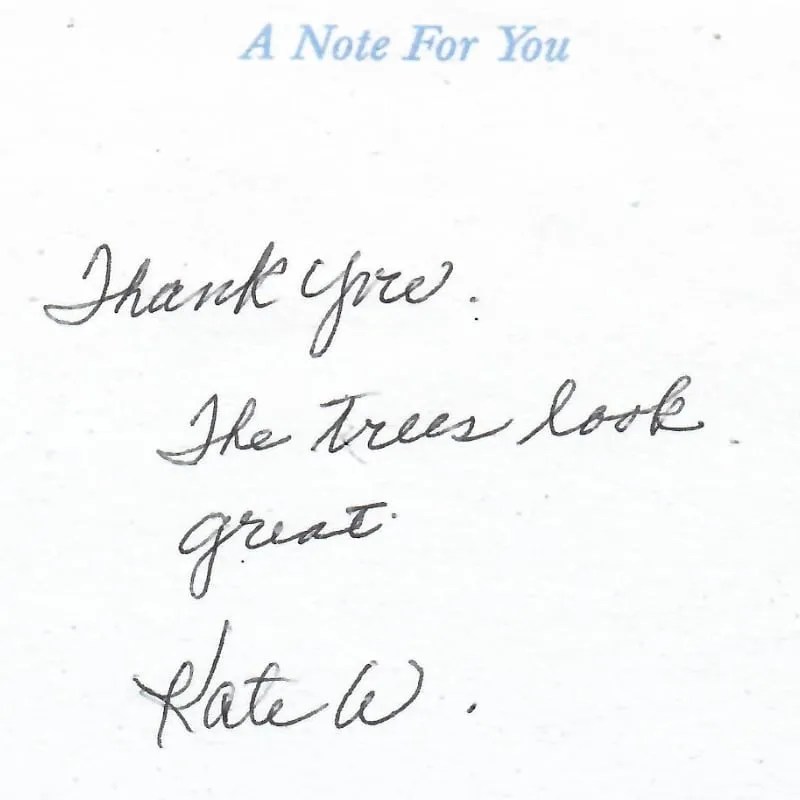 A Note For You
Thank You.
The trees look
great.
Kate W.